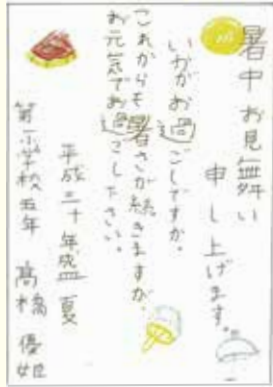 暑中お見舞い
申し上げます。
いかがお過ごしですか。
これからも暑さが続きますが、
お元気でお過ごし下さい。
平成二十年盛夏
第小学校五年 高橋優姫